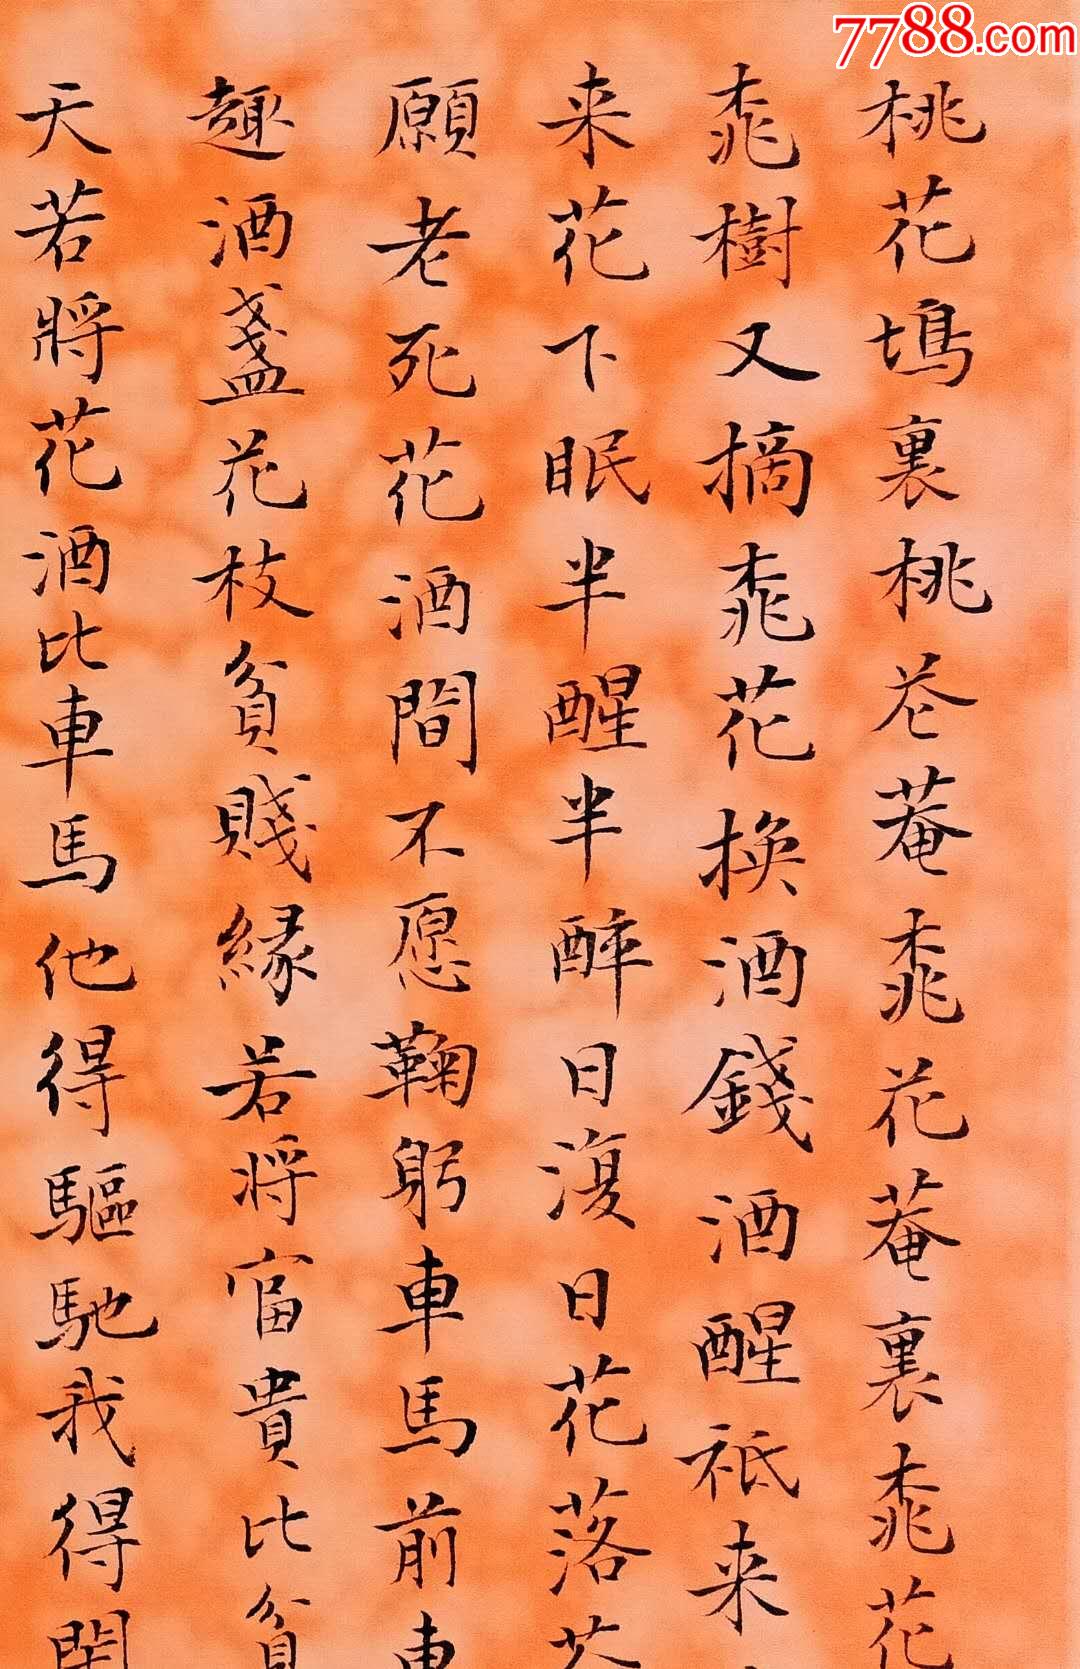 7788.com
桃花塢裏桃花菴桃花菴裏桃花
桃樹又摘桃花換酒錢酒醒祗来
来花下眠半醒半醉日復日花落花
願老死花酒間不愿鞠躬車馬前車
趣酒盞花枝貧賤緣若将富貴比貧
天若將花酒比車馬他得驅馳我得閑